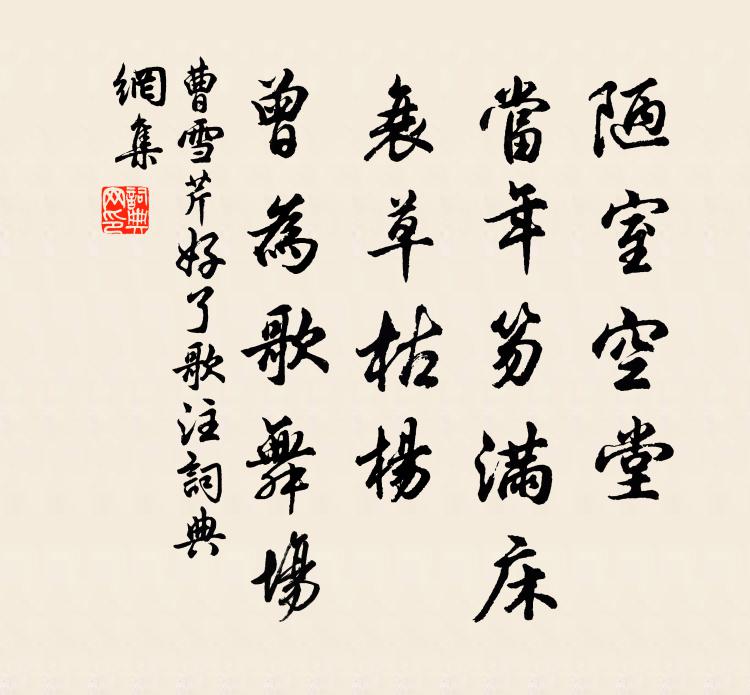 陋室空堂
當年笏滿床
衰草枯楊
曾為歌舞場
曹雪芹好了歌注詞典
網集
詞典
网印